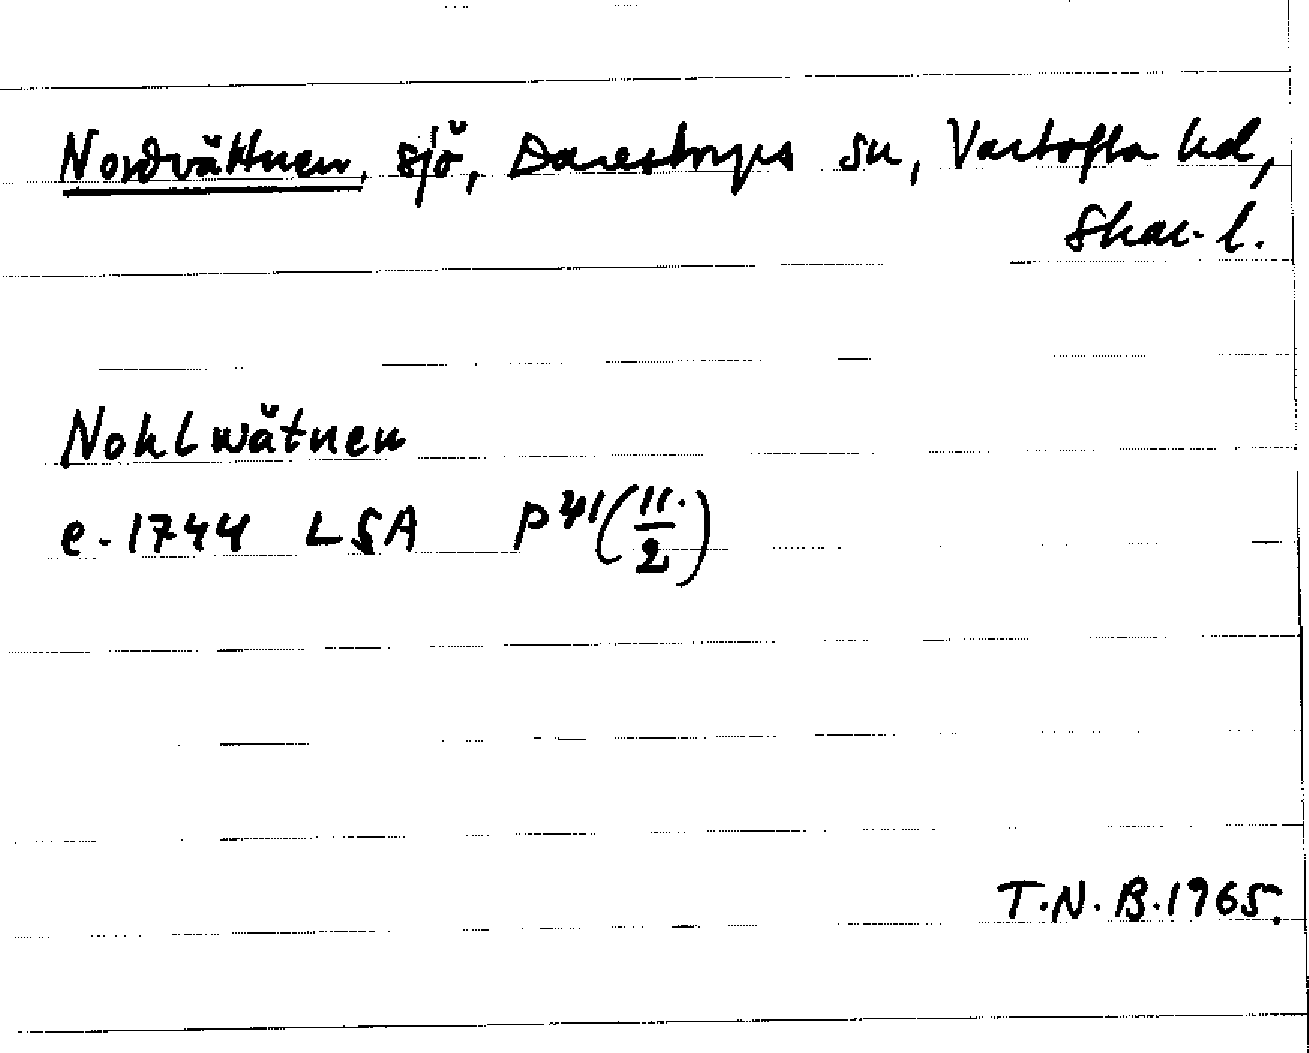 Nordvättnen, sjö, Daretorps sn, Vartofta hd,
Skar. l.
Nohlwätnen
e. 1744 LSA P 41 (11/2)
T.N.B. 1965.